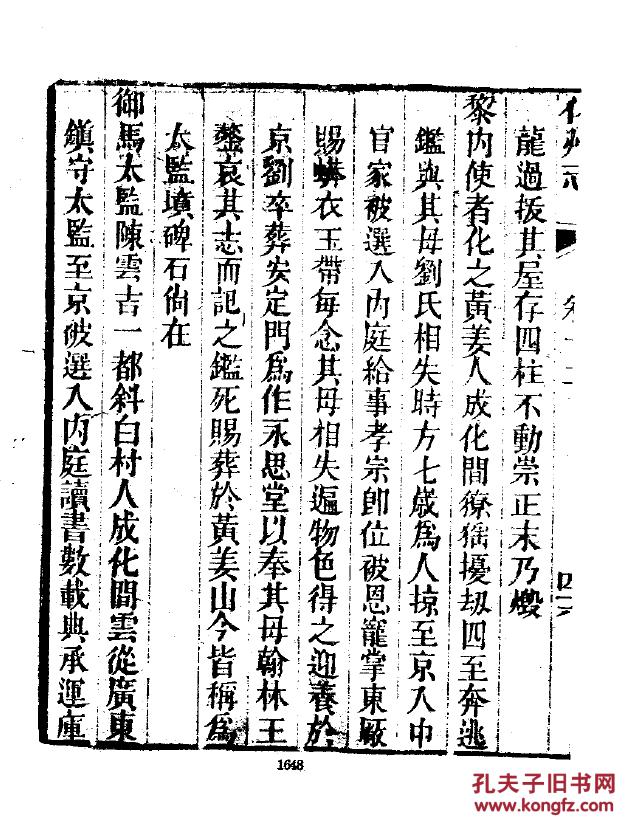 化州志 卷十二 四六
龍過拔其屋存四柱不動崇正末乃燬
黎內使者化之黃姜人成化間獠猺擾刼四至奔逃
鑑與其母劉氏相失時方七歲爲人掠至京入中
官家被選入內庭給事孝宗卽位被恩寵掌東厰
賜蟒衣玉帶每念其母相失遍物色得之迎養於
京劉卒葬安定門爲作永思堂以奉其母翰林王
鏊哀其志而記之鑑死賜葬於黃姜山今皆稱爲
太監墳碑石尙在
御馬太監陳雲吉一都斜白村人成化間雲從廣東
鎭守太監至京被選入內庭讀書數載典承運庫
1648
孔夫子旧书网
www.kongfz.com